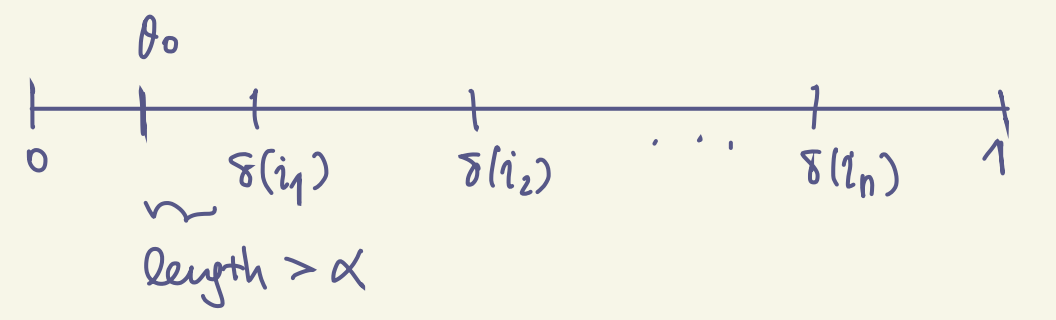 θ₀
0 δ(i₁) δ(i₂) ... δ(iₙ) 1
length > α